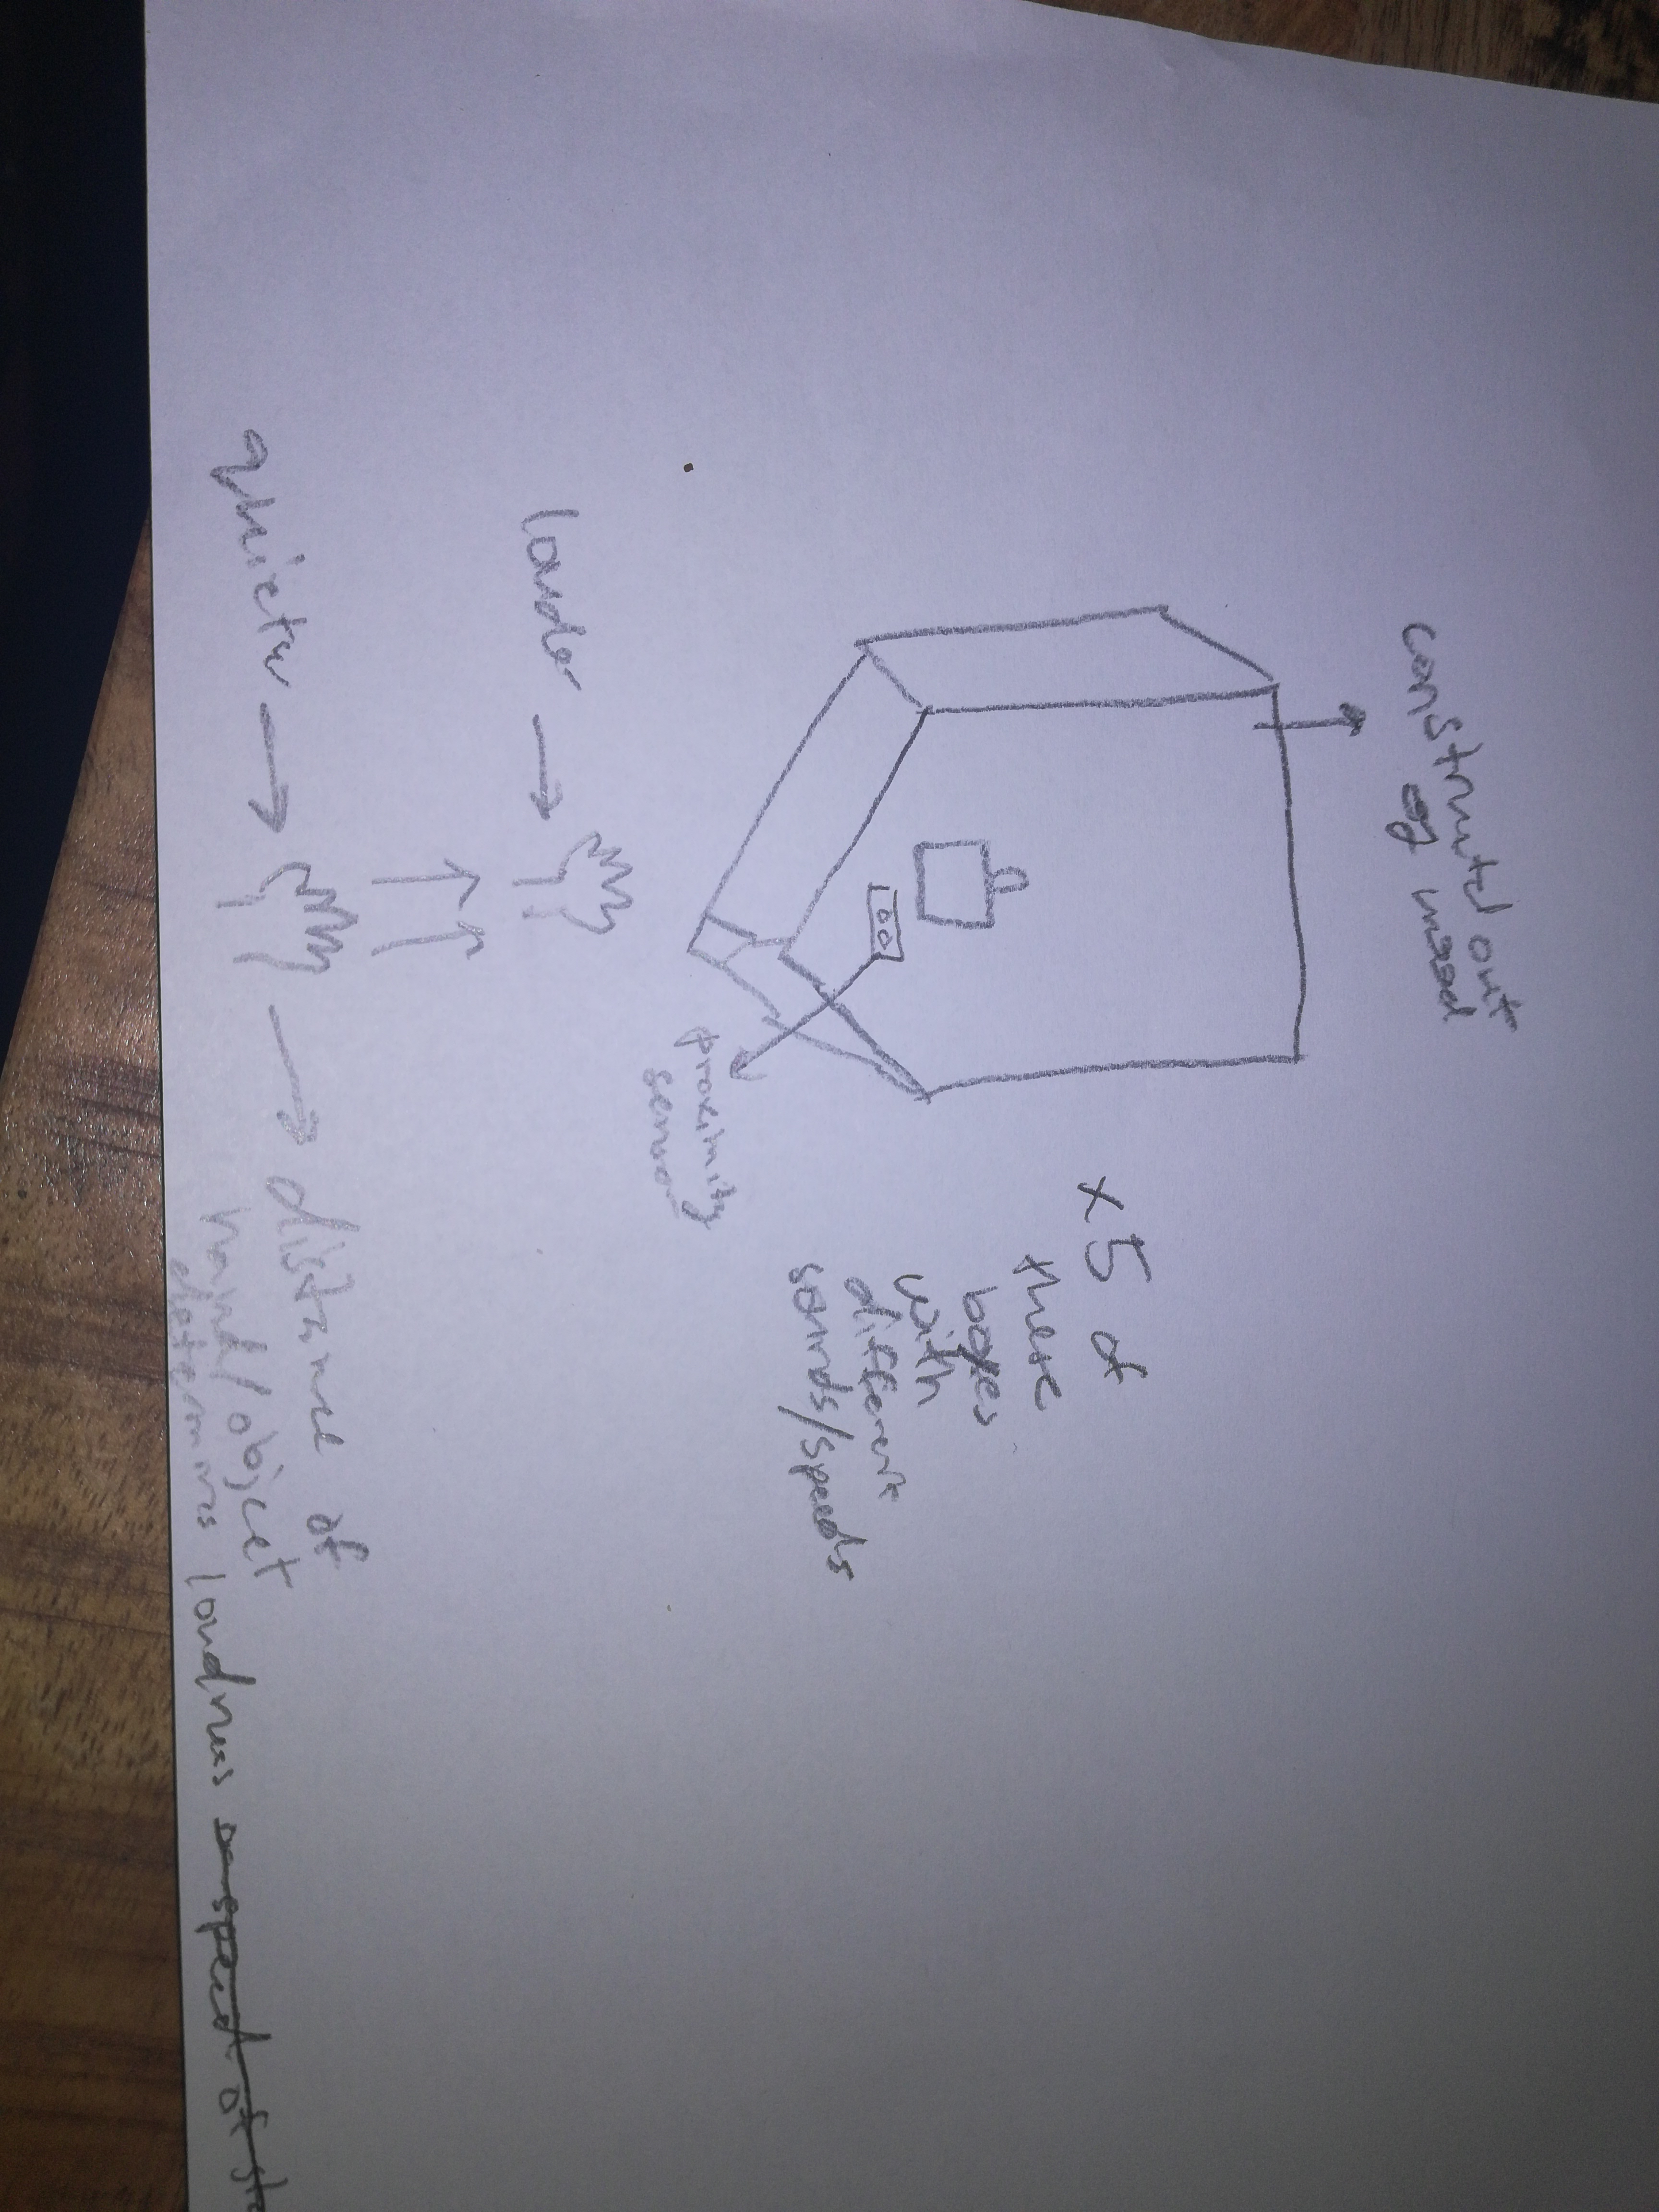 constructed out
of wood
x5 of
these
boxes
with
different
sounds/speeds
proximity
sensor
louder
quieter
distance of
hand/object
determines loudness or speed of